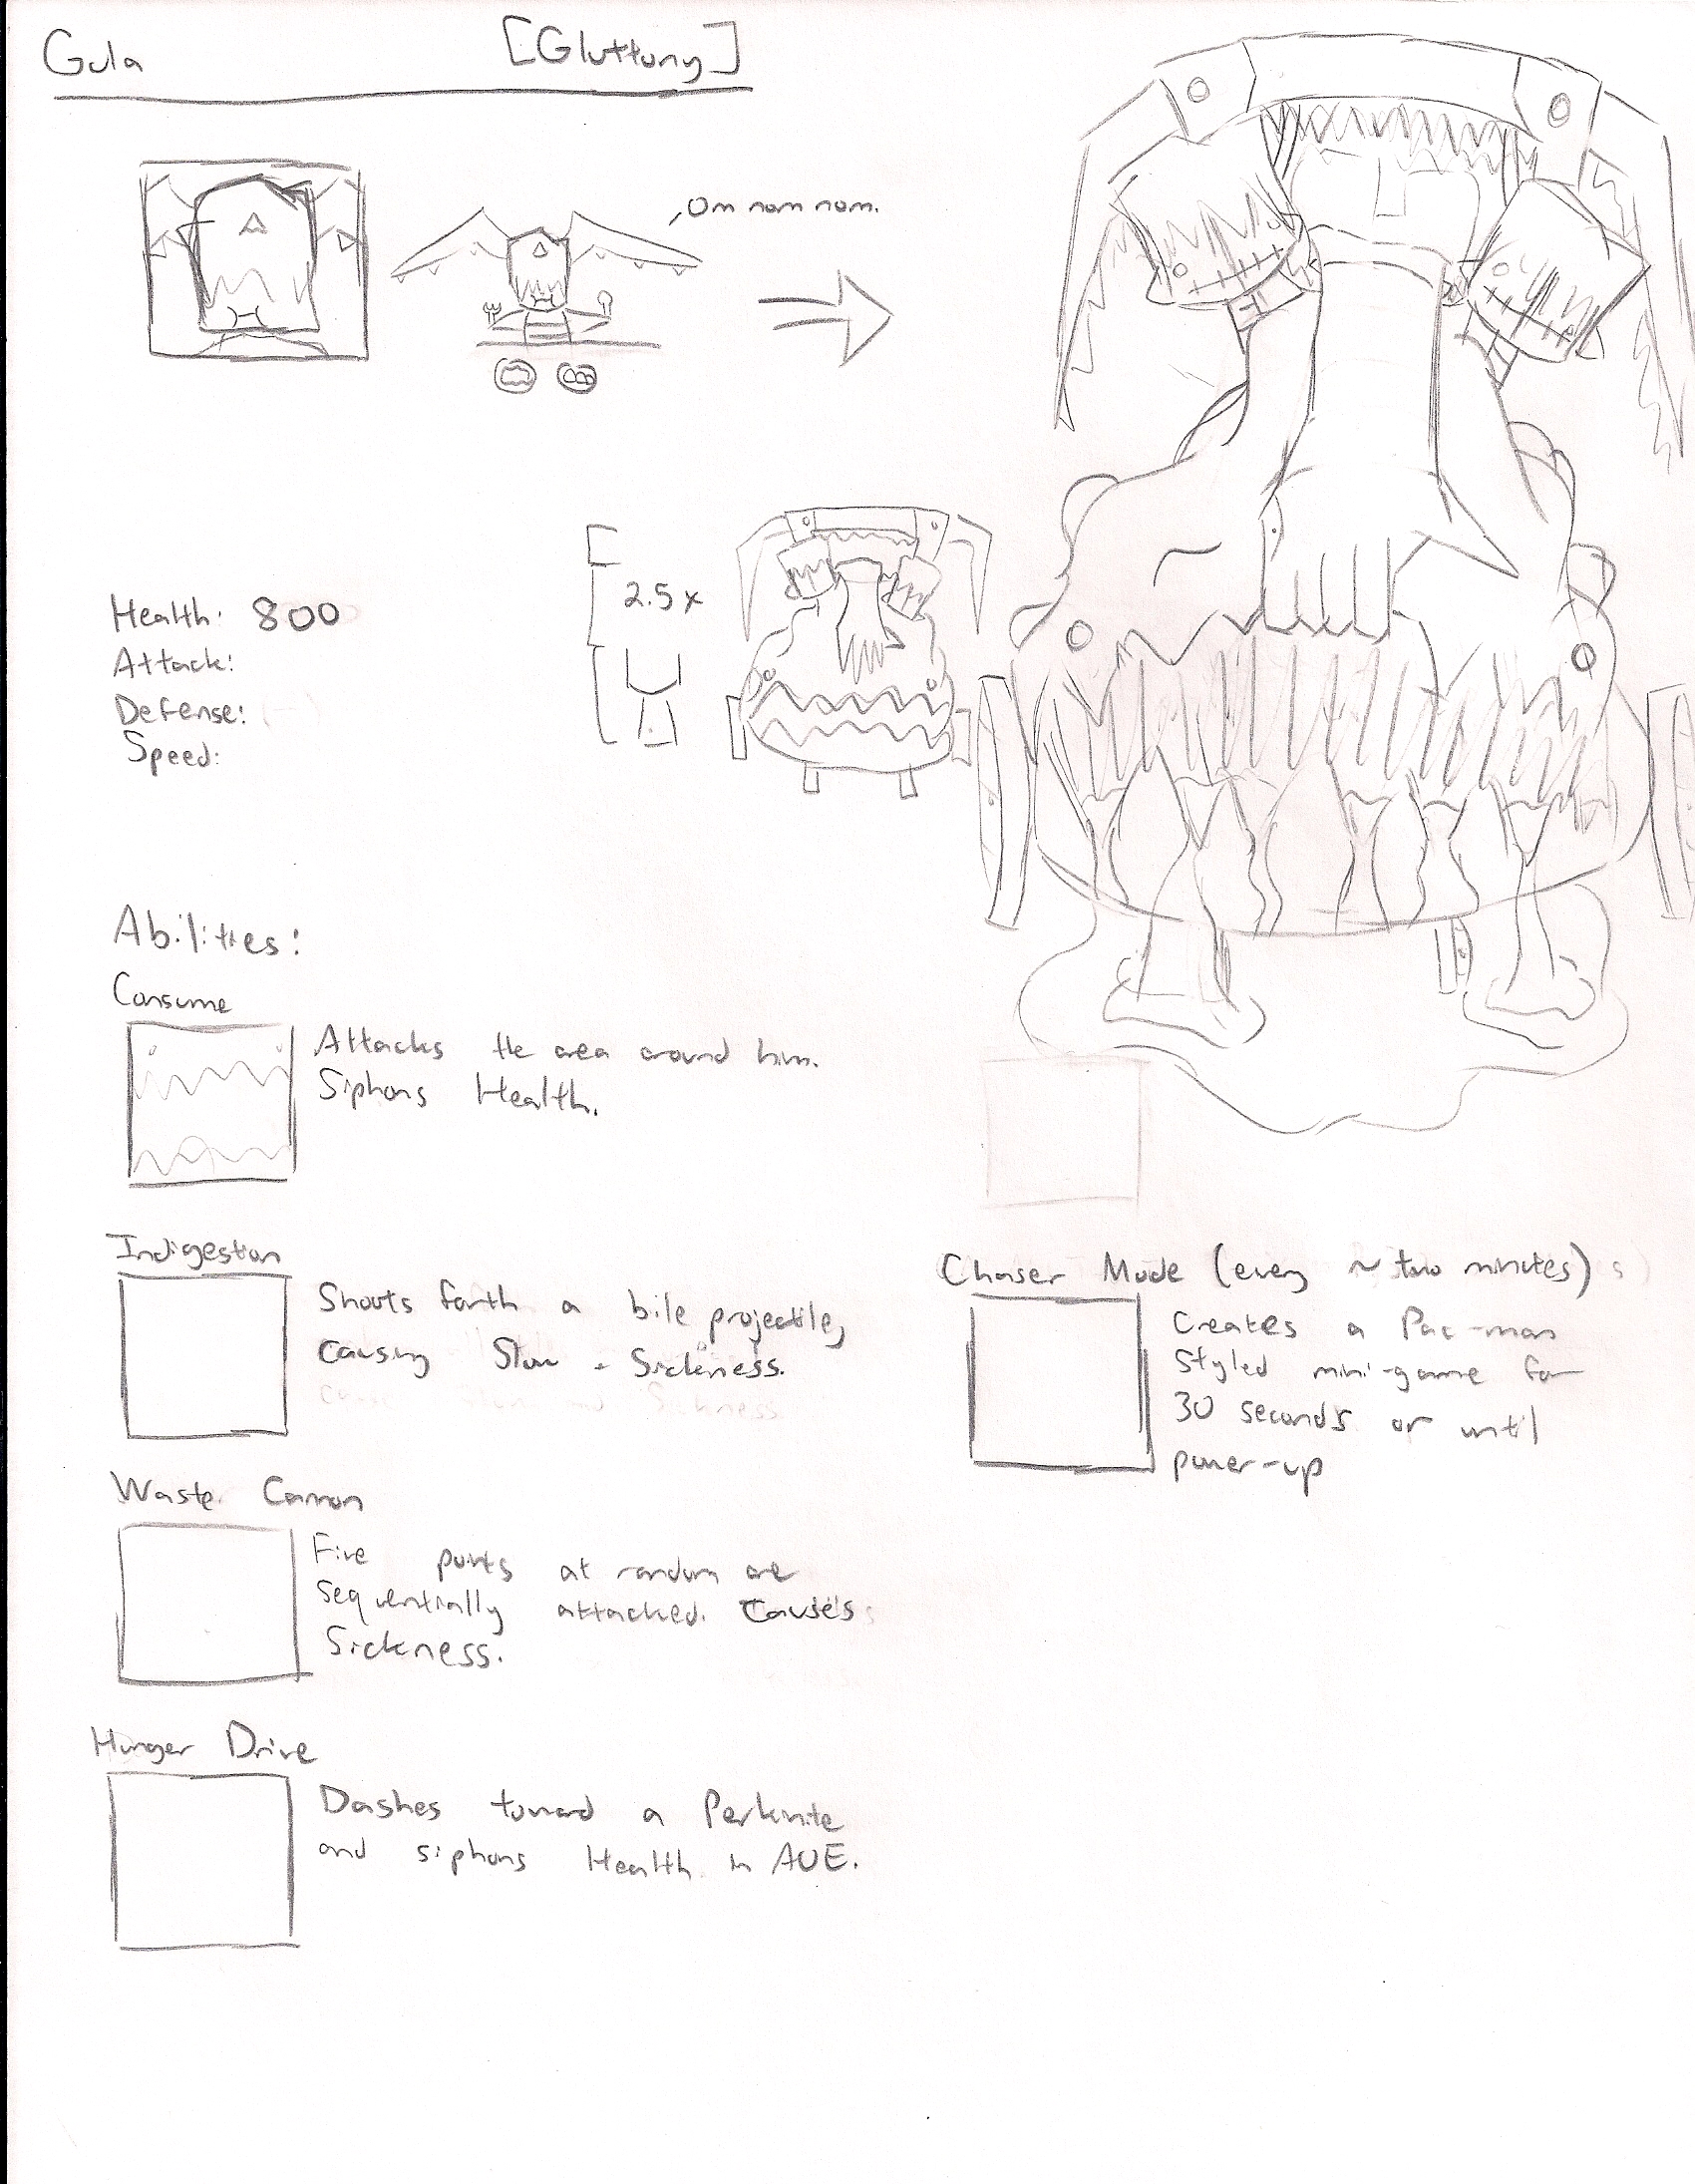 Gula [Gluttony]
Om nom nom.
2.5x
Health: 800
Attack:
Defense:
Speed:
Abilities:
Consume
Attacks the area around him.
Siphons Health.
Indigestion
Shoots forth a bile projectile,
causing Slow + Sickness.
Waste Cannon
Five points at random are
sequentially attacked. Causes
Sickness.
Hunger Drive
Dashes toward a Perknite
and siphons Health in AOE.
Chaser Mode (every ~ two minutes)
Creates a Pac-man
styled mini-game for
30 seconds or until
power-up